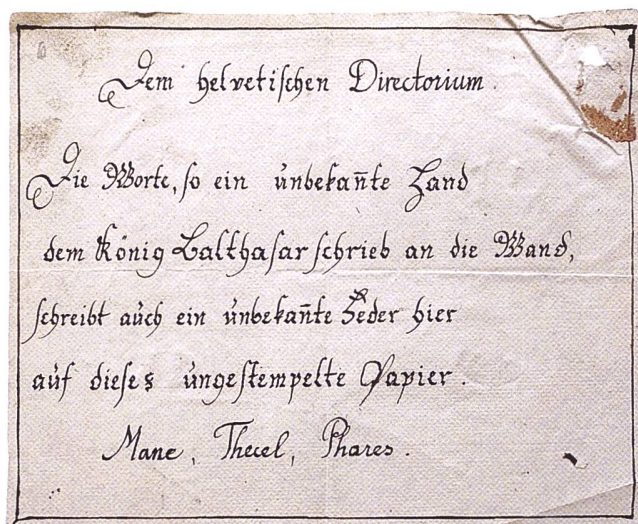 Dem helvetischen Directorium.
Die Worte, so ein unbekan̄te Hand
dem König Balthasar schrieb an die Wand,
schreibt auch ein unbekan̄te Feder hier
auf dieses ungestempelte Papier.
Mane, Thecel, Phares.